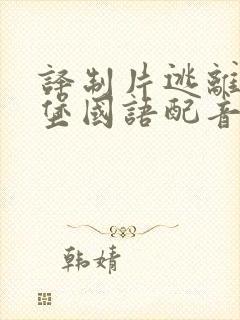 譯制片逃離
堡國語配音
韩婧